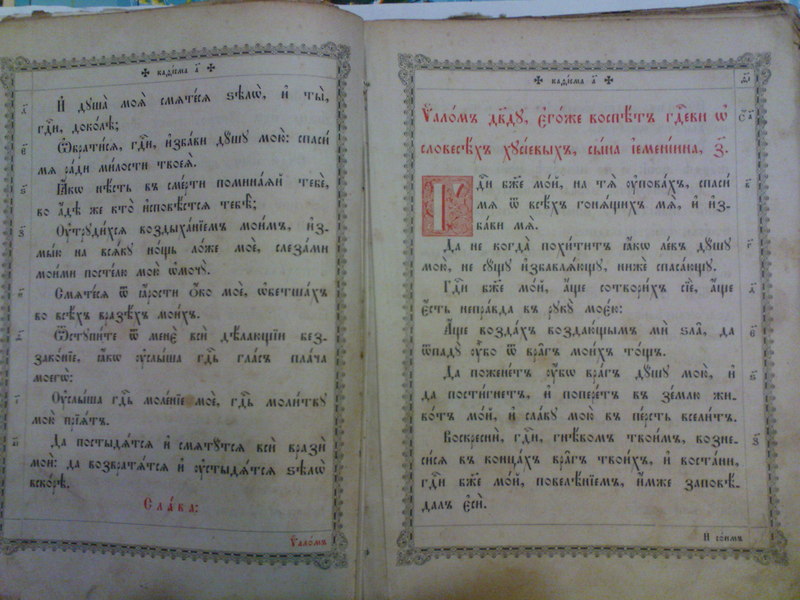 ✠ каѳі́сма а҃ ✠
И҆ дꙋша̀ моѧ̀ смѧте́сѧ ѕѣлѡ̀, и҆ ты̀,
гдⷭ҇и, доко́лѣ;
Ѡ҆брати́сѧ, гдⷭ҇и, и҆зба́ви дꙋ́шꙋ мою̀: спаси́
мѧ ра́ди ми́лости твоеѧ̀.
Ꙗ҆́кѡ нѣ́сть въ сме́рти помина́ѧй тебѐ,
во а҆́дѣ же кто̀ и҆сповѣ́стсѧ тебѣ̀;
Оу҆трꙋди́хсѧ воздыха́нїемъ мои́мъ, и҆з-
мы́ю на всѧ́кꙋ но́щь ло́же моѐ, слеза́ми
мои́ми посте́лю мою̀ ѡ҆мочꙋ̀.
Смѧте́сѧ ѿ ꙗ҆́рости ѻ҆́ко моѐ, ѡ҆бетша́хъ
во всѣ́хъ вразѣ́хъ мои́хъ.
Ѿстꙋпи́те ѿ менє̀ всѝ дѣ́лающїи без-
зако́нїе, ꙗ҆́кѡ оу҆слы́ша гдⷭ҇ь гла́съ пла́ча
моегѡ̀:
Оу҆слы́ша гдⷭ҇ь моле́нїе моѐ, гдⷭ҇ь моли́твꙋ
мою̀ прїѧ́тъ.
Да постыдѧ́тсѧ и҆ смѧтꙋ́тсѧ всѝ вразѝ
моѝ: да возвратѧ́тсѧ и҆ оу҆стыдѧ́тсѧ ѕѣлѡ̀
вско́рѣ.
Сла́ва:
Ѱало́мъ
✠ каѳі́сма а҃ ✠
Ѱало́мъ дв҃дꙋ, є҆гѡ́же воспѣ́тъ гдⷭ҇еви ѡ҆
словесѣ́хъ хꙋсі́евыхъ, сы́на і҆емені́ина, з҃.
Гдⷭ҇и бж҃е мо́й, на тѧ̀ оу҆пова́хъ, спаси́
мѧ ѿ всѣ́хъ гонѧ́щихъ мѧ̀, и҆ и҆з-
ба́ви мѧ̀.
Да не когда̀ похи́титъ ꙗ҆́кѡ ле́въ дꙋ́шꙋ
мою̀, не сꙋ́щꙋ и҆збавлѧ́ющꙋ, нижѐ спаса́ющꙋ.
Гдⷭ҇и бж҃е мо́й, а҆́ще сотвори́хъ сїѐ, а҆́ще
є҆́сть непра́вда въ рꙋкꙋ̀ моє́ю:
А҆́ще возда́хъ воздаю́щымъ мѝ ѕла̑, да
ѿпадꙋ̀ оу҆́бо ѿ вра̑гъ мои́хъ то́щъ.
Да пожене́тъ оу҆́бѡ вра́гъ дꙋ́шꙋ мою̀, и҆
да пости́гнетъ, и҆ попере́тъ въ зе́млю жи-
во́тъ мо́й, и҆ сла́вꙋ мою̀ въ пе́рсть всели́тъ.
Воскреснѝ, гдⷭ҇и, гнѣ́вомъ твои́мъ, возне-
си́сѧ въ конца́хъ вра̑гъ твои́хъ, и҆ воста́ни,
гдⷭ҇и бж҃е мо́й, повелѣ́нїемъ, и҆́мже заповѣ́-
далъ є҆сѝ.
И҆ со́нмъ